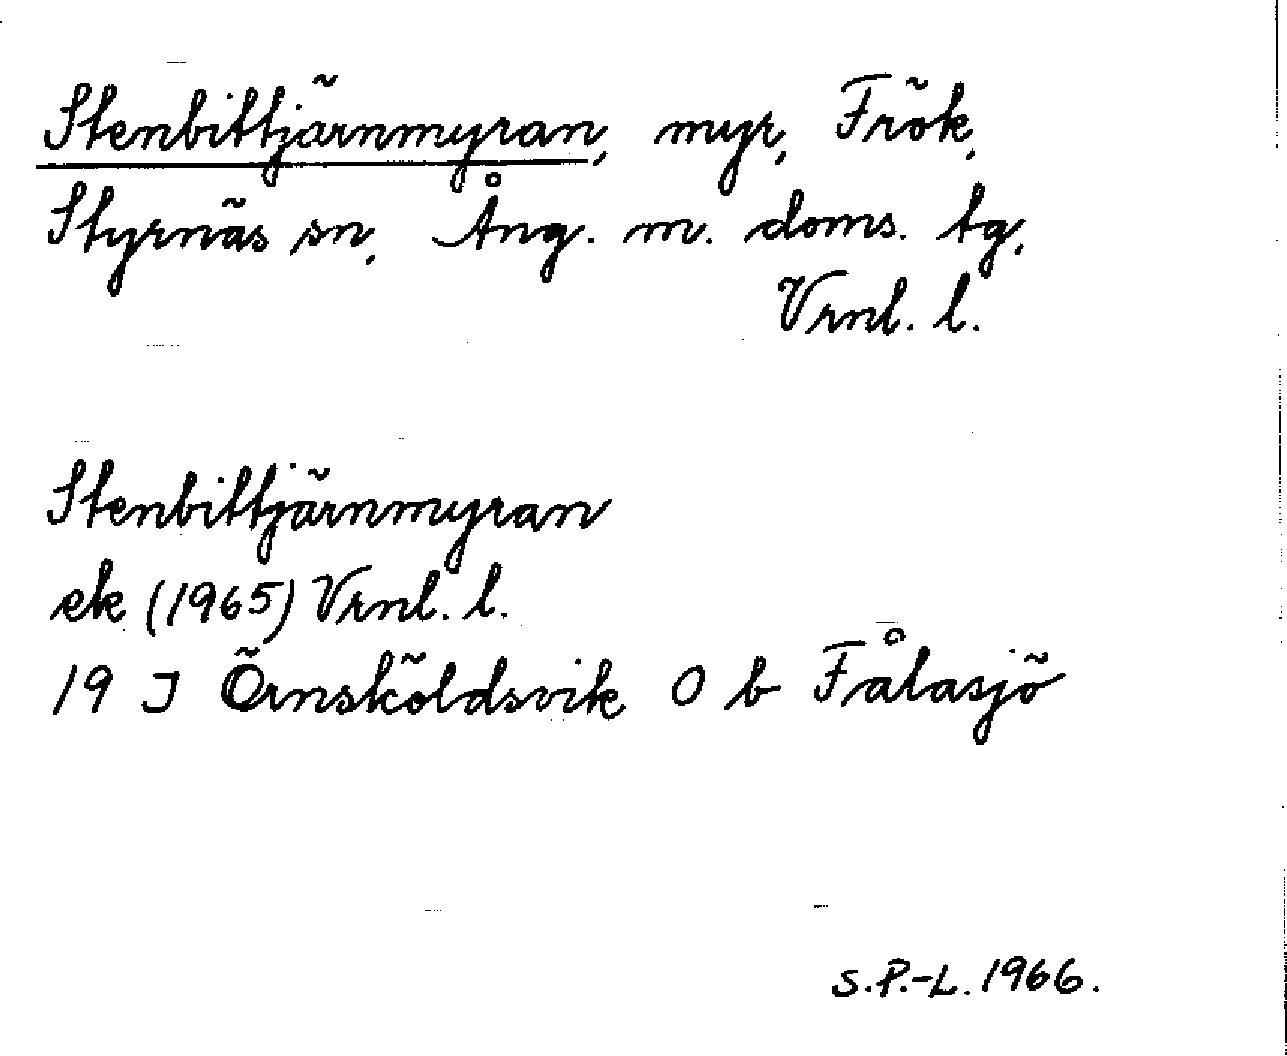 Stenbittjärnmyran, myr, Frök,
Styrnäs sn, Ång. m. doms. tg,
Vrnl. l.
Stenbittjärnmyran
ek (1965) Vrnl. l.
19 J Örnsköldsvik O b Fålasjö
S.P.-L. 1966.